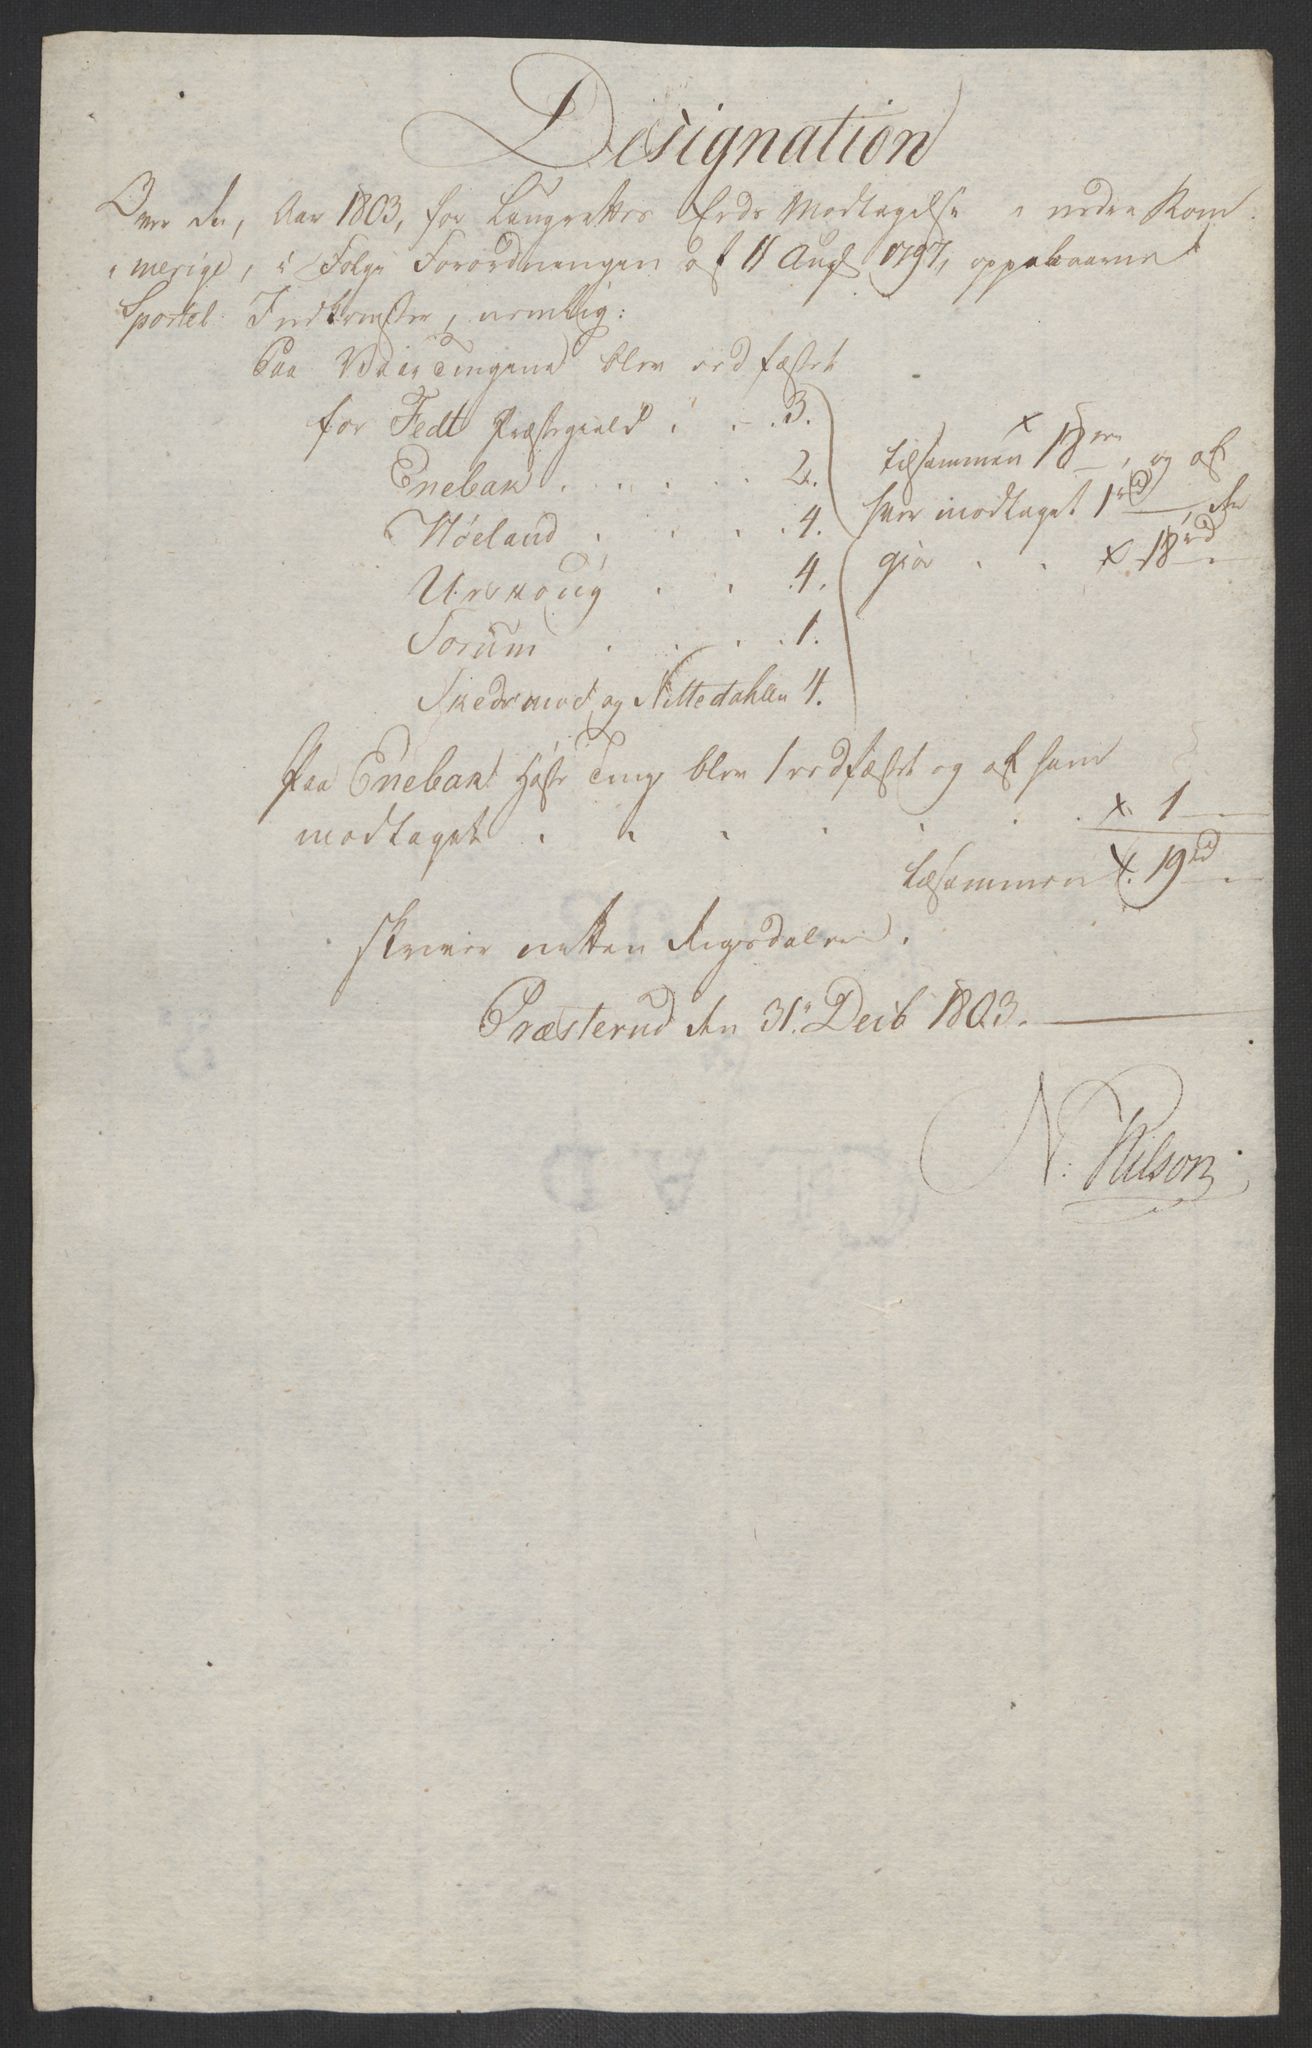 Designation
Over de, Aar 1803, for Laugrettes Eeds Modtagelse i nedre Rom-
merige, i Følge Forordningen af 11 Aug 1797, oppebaarne
Sportel Indkomster, nemlig:
Paa Vaar Tingene blev eedfæstet
for Fedt Præstegield . . . 3.
Enebak . . . . . 2.
Høeland . . . . 4.
Urskoug . . . 4.
Sorum . . . . 1.
Skedsmoe og Nittedahlen 4.
tilsammen 18, og af
hver modtaget 1 rd, der
giør . . 18 rd
Paa Enebak Høste Ting blev 1 eedfæstet og af ham
modtaget . . . . . . . 1
tilsammen 19 rd
skriver nitten Rigsdaler.
Præsterud den 31. Decb 1803.
N. Nilson